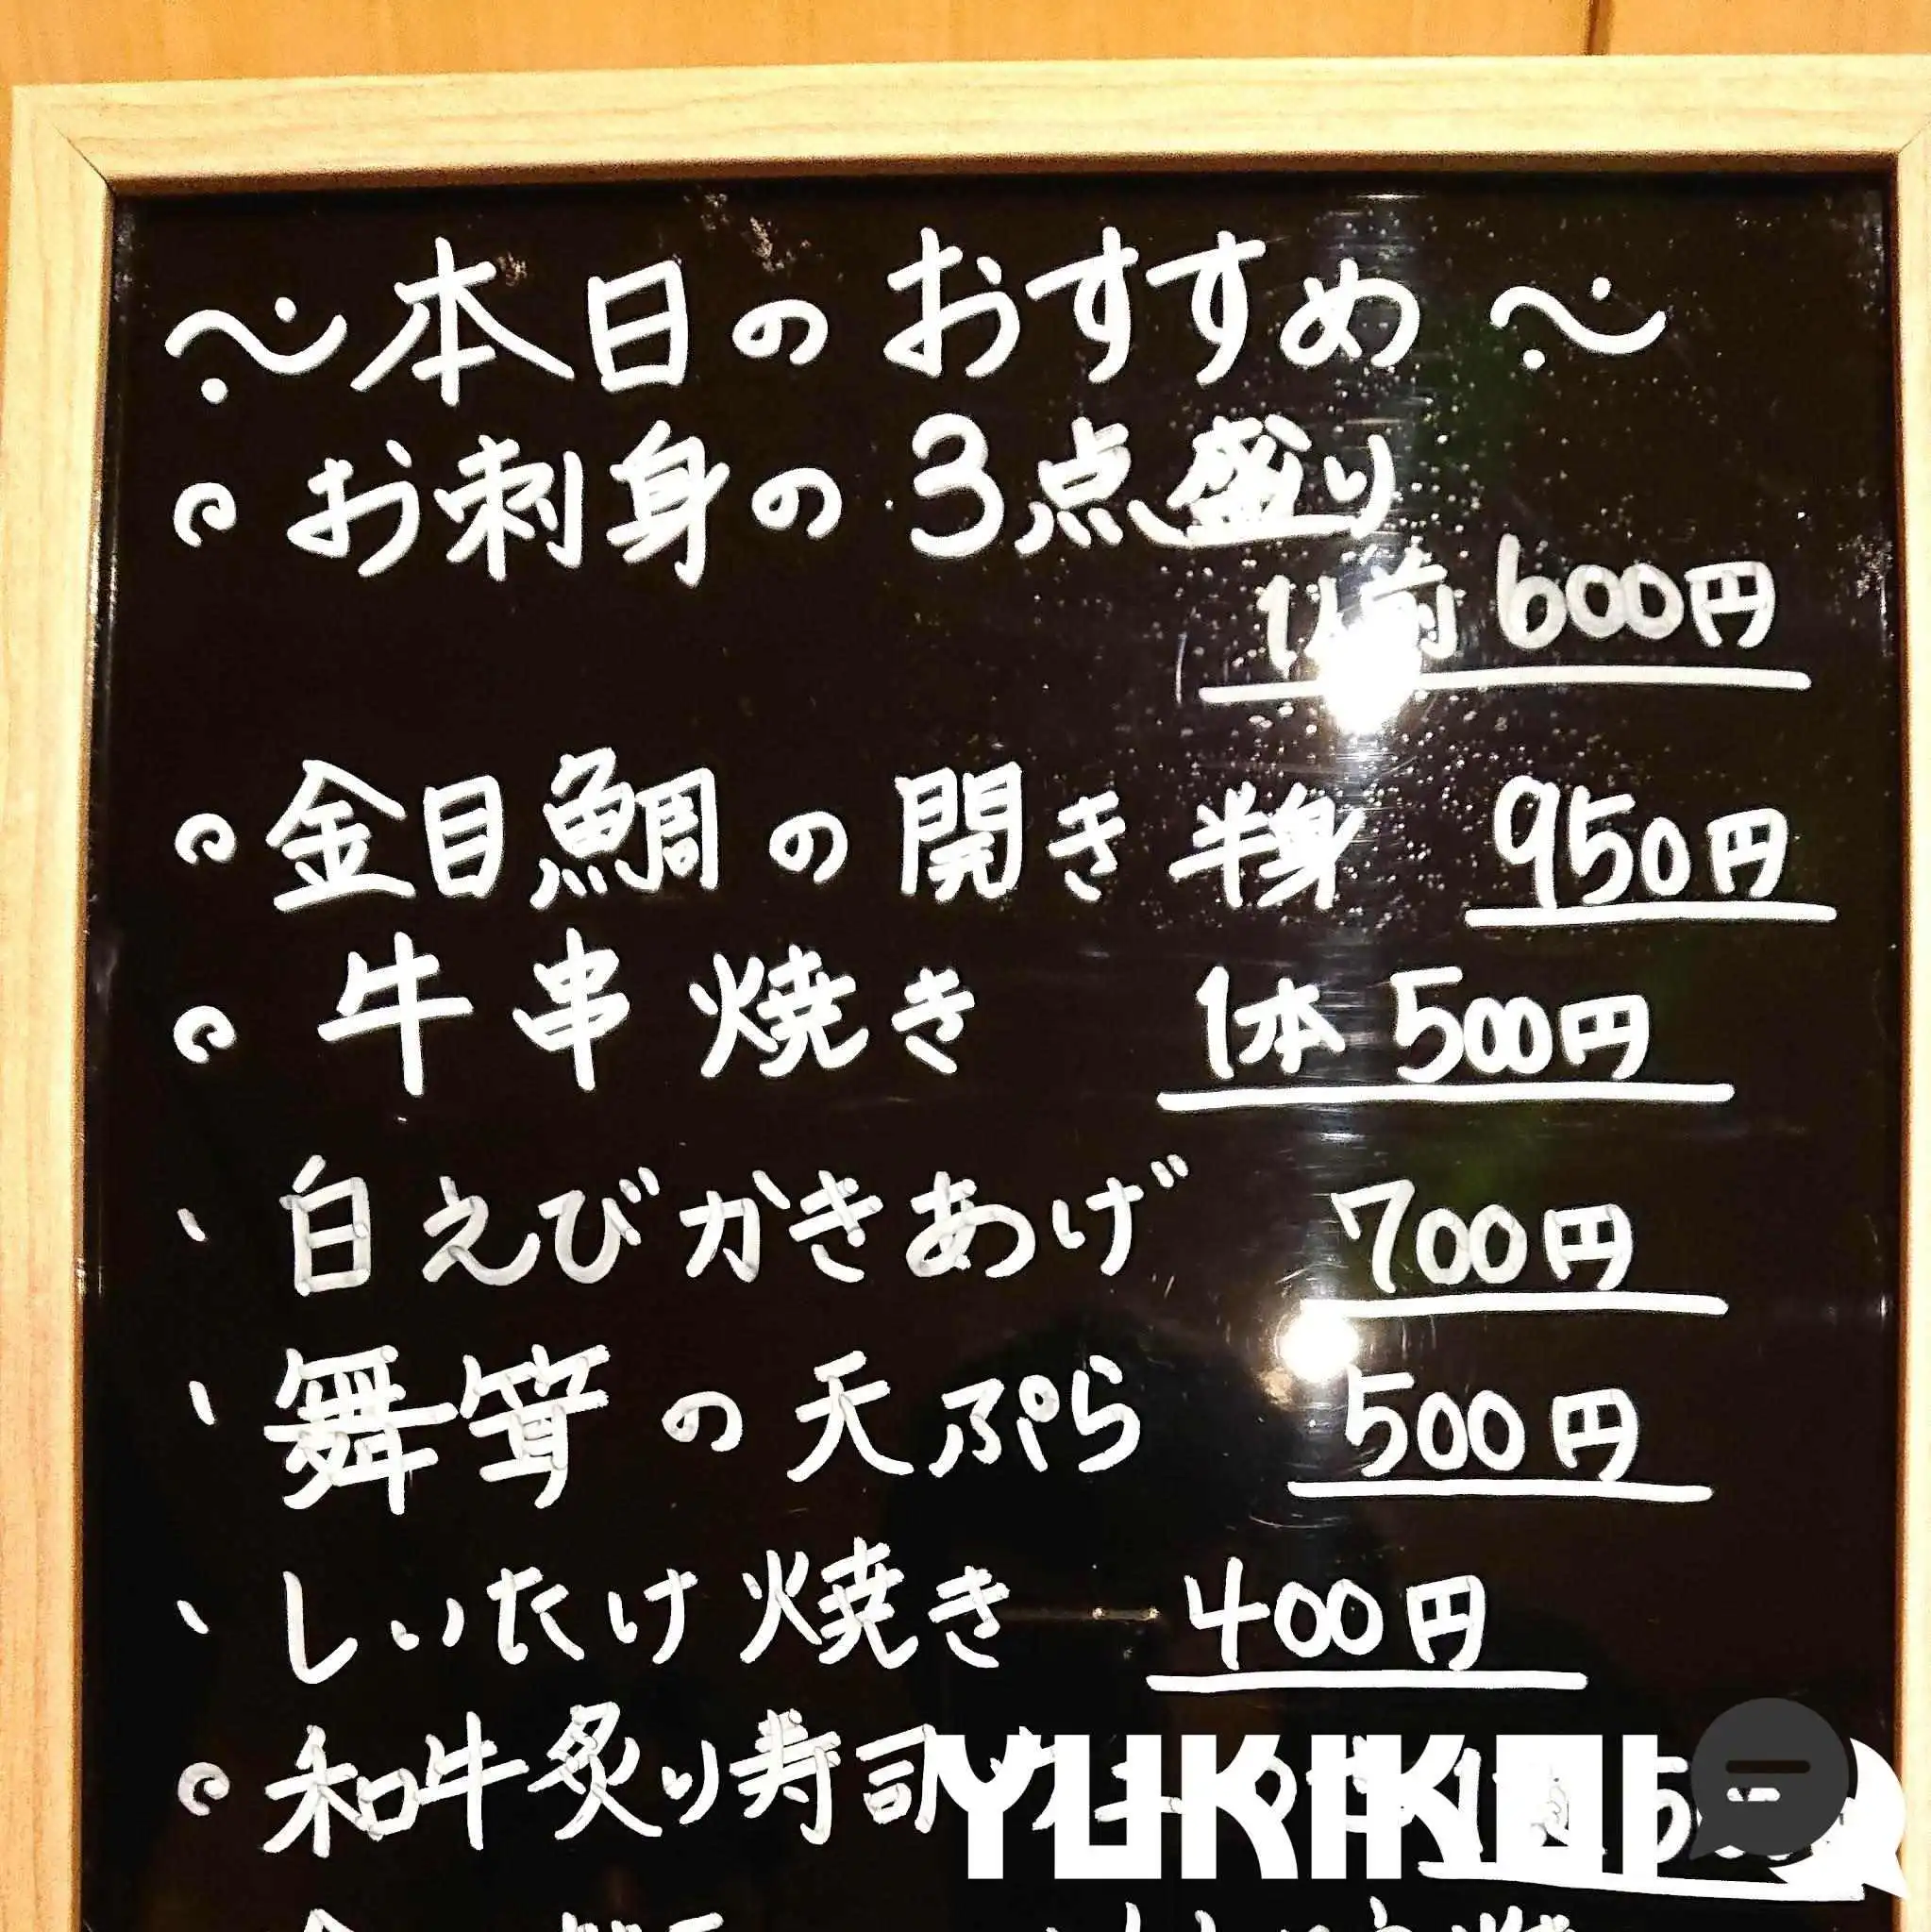 ~本日のおすすめ~
お刺身の3点盛り
1人前 600円
金目鯛の開き 半身 950円
牛串焼き 1本 500円
白えびかきあげ 700円
舞茸の天ぷら 500円
しいたけ焼き 400円
和牛炙り寿司
YUKIKOI